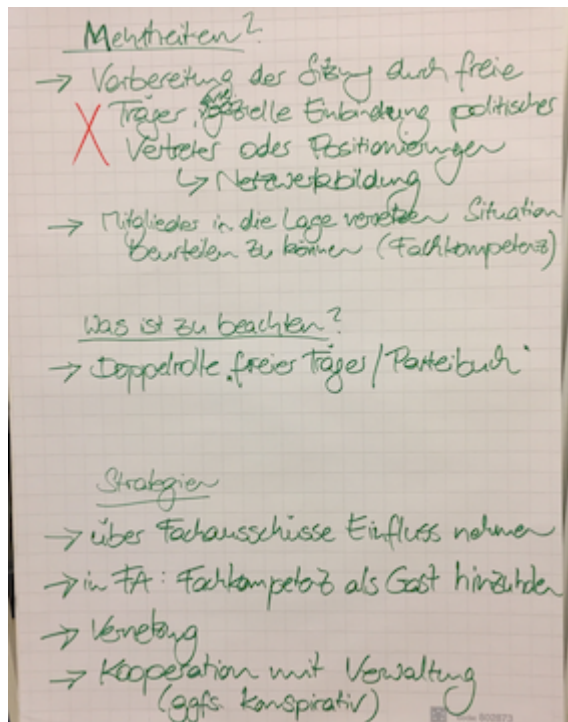 Mehrheiten?
→ Vorbereitung der Sitzung durch freie
Träger, gezielte Einbindung politischer
Vertreter oder Positionierungen
↳ Netzwerkbildung
→ Mitglieder in die Lage versetzen Situation
beurteilen zu können (Fachkompetenz)
Was ist zu beachten?
→ Doppelrolle "freier Träger/Parteibuch"
Strategien
→ über Fachausschüsse Einfluss nehmen
→ in FA: Fachkompetenz als Gast hinzuholen
→ Vernetzung
→ Kooperation mit Verwaltung
(ggfs. konspirativ)